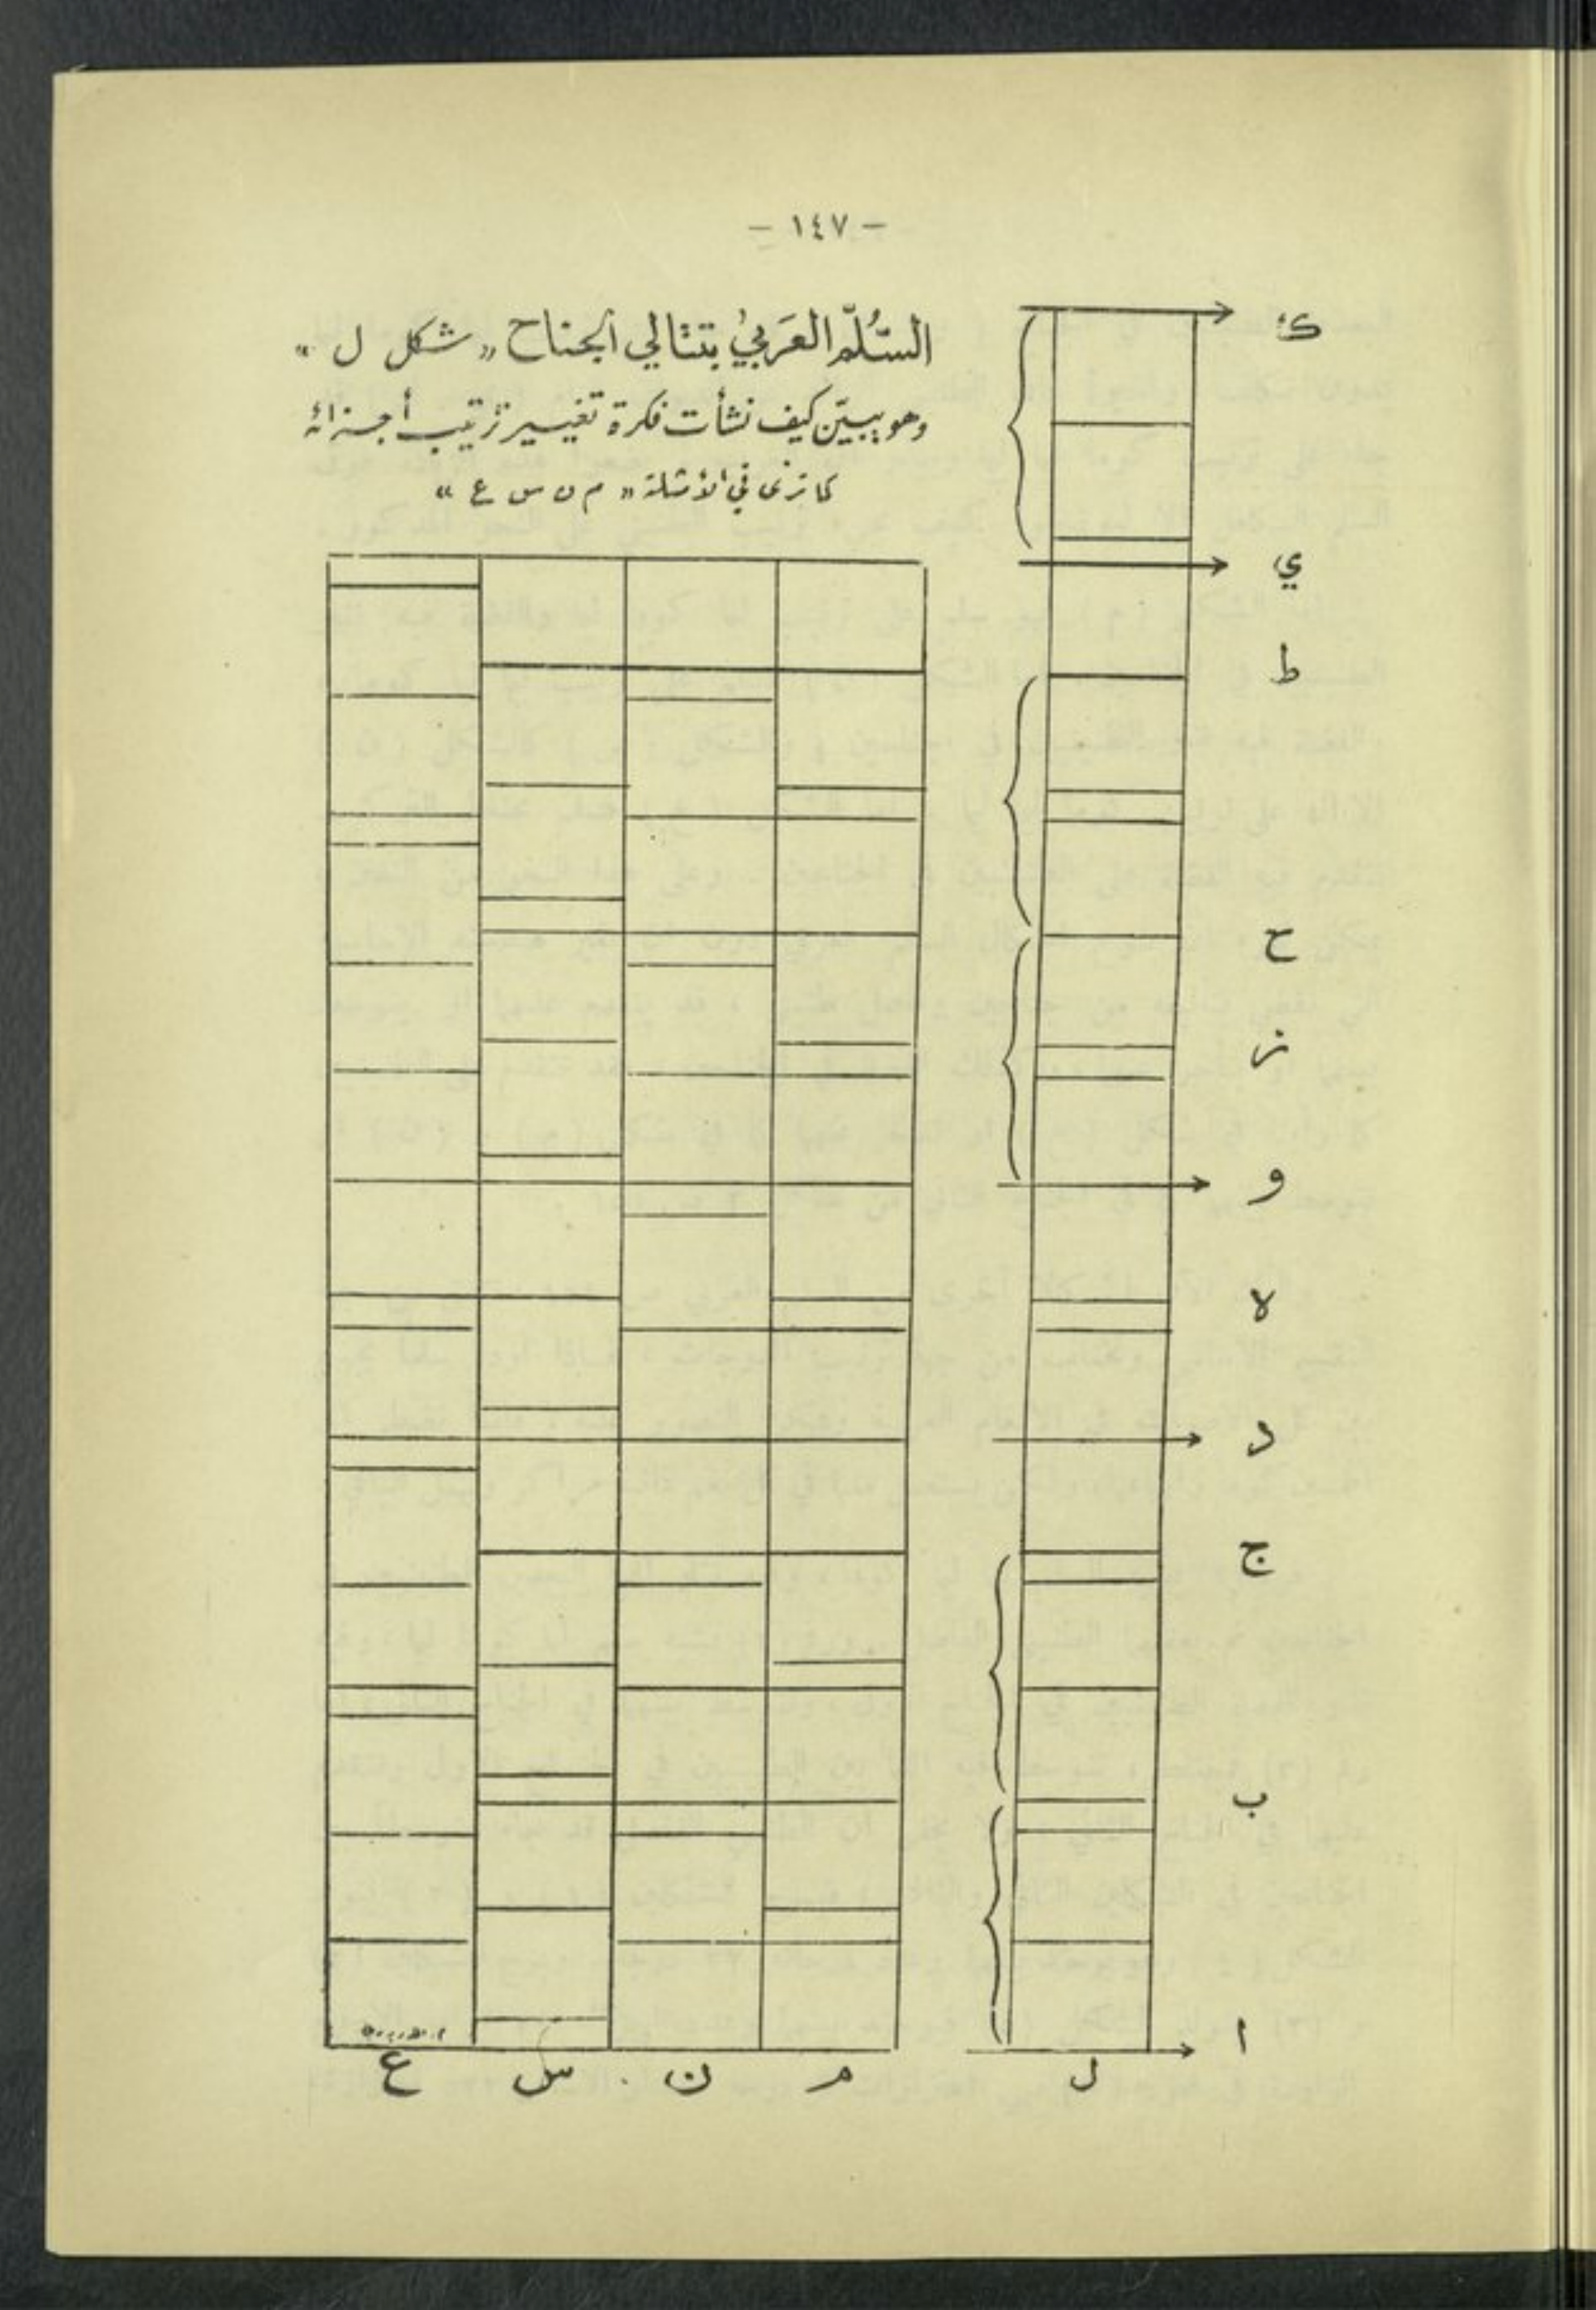 - ١٤٧ -
السُّلَّم العَرَبيُ بتتالي الجناح « شكل ل »
وهو يبيّن كيف نشأت فكرة تغيير ترتيب أجزائه
كما ترى في الأمثلة « م ن س ع »
ك
ي
ط
ح
ز
و
ه
د
ج
ب
ا
ل
م
ن
س
ع